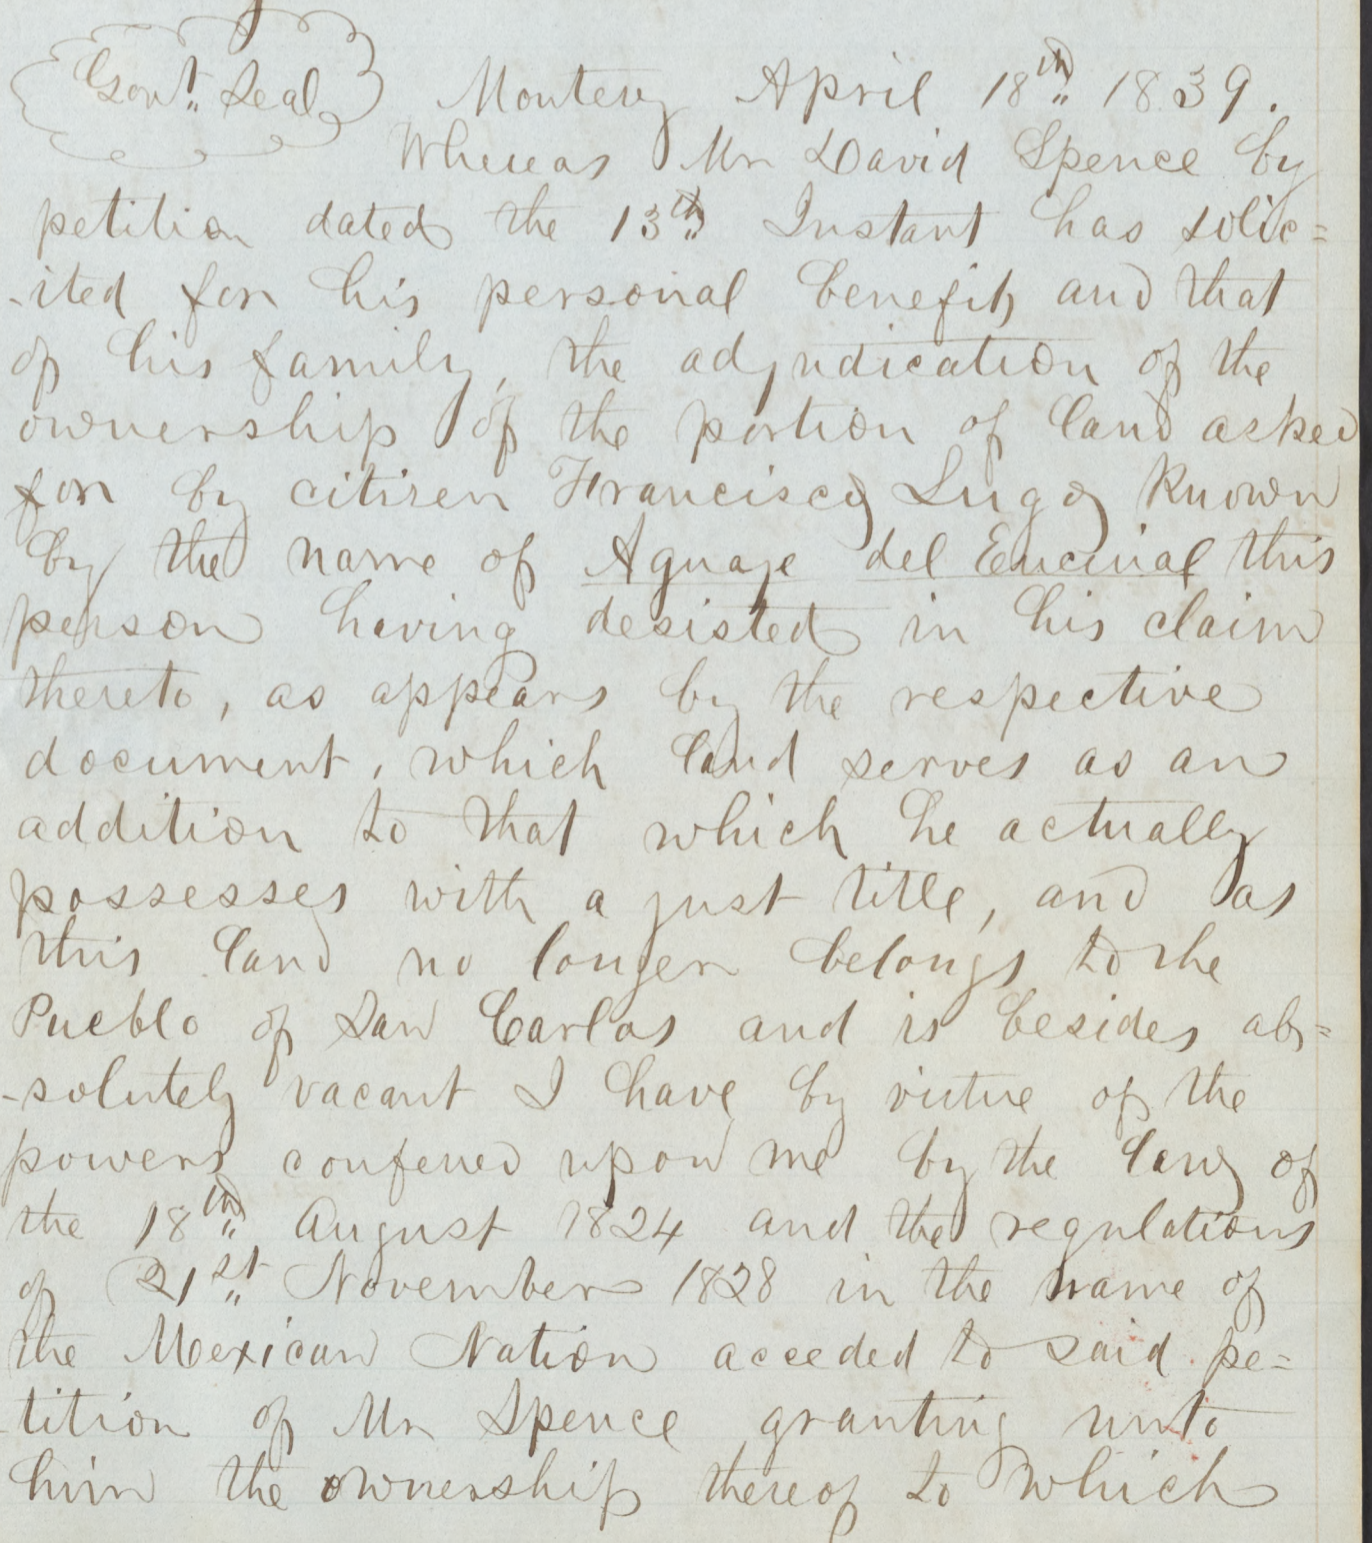 Govt. Seal Monterey April 18th 1839.
Whereas Mr David Spence by
petition dated the 13th Instant has solic=
-ited for his personal benefit, and that
of his family, the adjudication of the
ownership of the portion of land asked
for by citizen Francisco Lugo known
by the name of Aguaje del Encinal this
person having desisted in his claim
thereto, as appears by the respective
document, which land serves as an
addition to that which he actually
possesses with a just title, and as
this land no longer belongs to the
Pueblo of San Carlos and is besides ab=
-solutely vacant I have by virtue of the
powers conferred upon me by the law of
the 18th August 1824 and the regulations
of 21st November 1828 in the name of
the Mexican Nation acceded to said pe=
tition of Mr Spence granting unto
him the ownership thereof to which